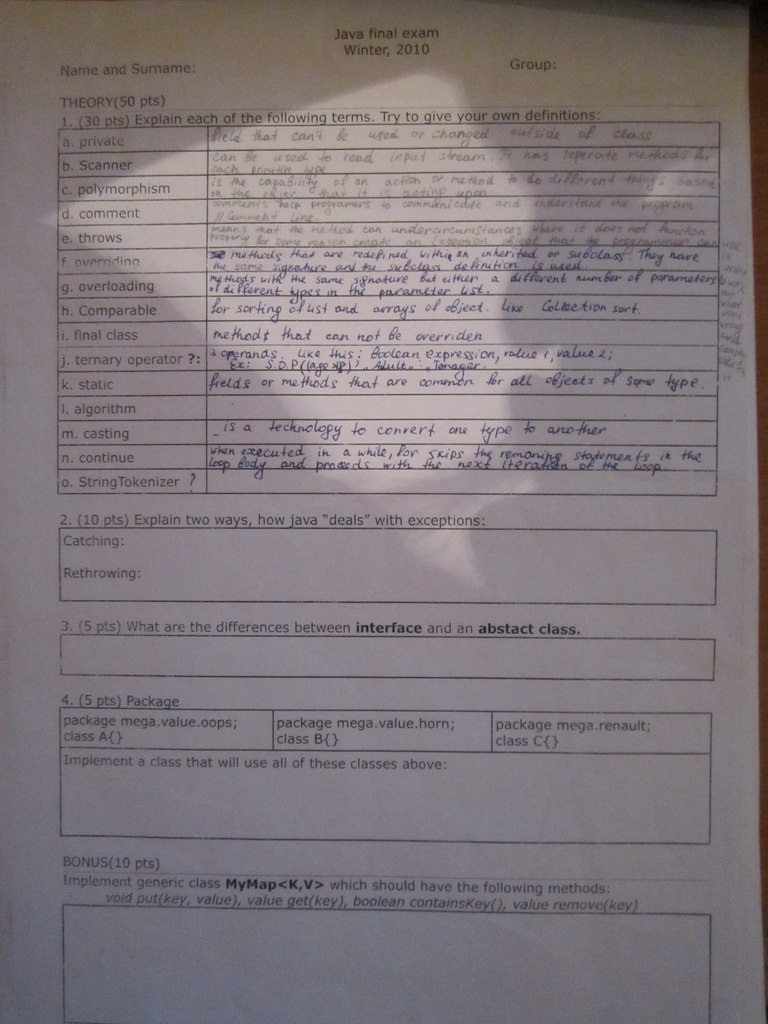 Java final exam
Winter, 2010
Name and Surname: Group:
THEORY(50 pts)
1. (30 pts) Explain each of the following terms. Try to give your own definitions:
a. private field that can't be used or changed outside of class
b. Scanner can be used to read input stream. It has seperate methods for
each primitive type
c. polymorphism is the capability of an action or method to do different things based
on the objec that it is acting upon
d. comment comments help programers to communicate and understand the program
// Comment line.
e. throws means that the method can under circumstances where it does not function
properly for some reason create an exception object that the programmer can
f. overriding methods that are redefined within an inherited or subclass. They have
the same signature and the subclass definition is used
g. overloading methods with the same signature but either a different number of parameters
or different types in the parameter list.
h. Comparable for sorting of list and arrays of object. like Collection sort.
i. final class methods that can not be overriden
j. ternary operator ?: 3 operands. like this: Boolean expression, value 1, value 2;
Ex: S.O.P((age "Adult" : "Tenager.
k. static fields or methods that are common for all objects of same type.
l. algorithm
m. casting _is a technology to convert one type to another
n. continue when executed in a while, for skips the remaning statements in the
loop body and proceeds with the next iteration of the loop
o. StringTokenizer ?
2. (10 pts) Explain two ways, how java "deals" with exceptions:
Catching:
Rethrowing:
3. (5 pts) What are the differences between interface and an abstact class.
4. (5 pts) Package
package mega.value.oops; package mega.value.horn; package mega.renault;
class A{} class B{} class C{}
Implement a class that will use all of these classes above:
BONUS(10 pts)
Implement generic class MyMap<K,V> which should have the following methods:
void put(key, value), value get(key), boolean containsKey(), value remove(key)